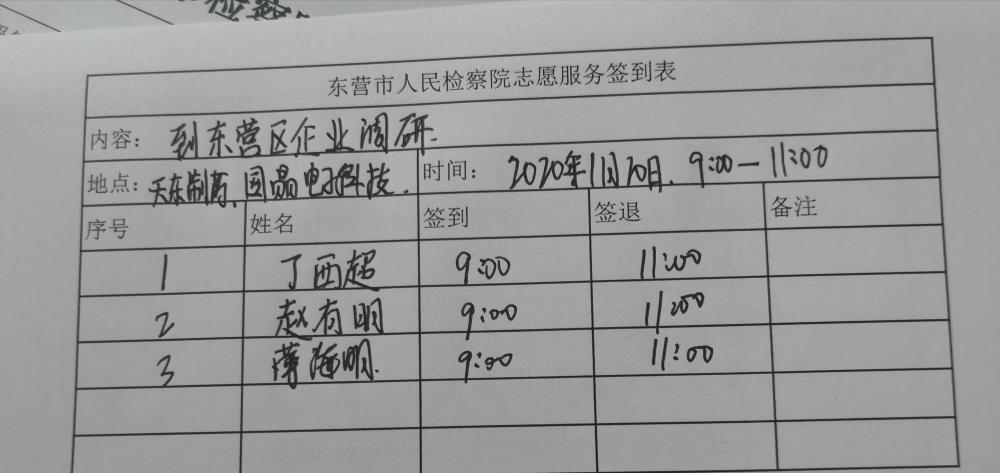 东营市人民检察院志愿服务签到表
内容： 到东营区企业调研.
地点： 天东制药、国晶电子科技. 时间： 2020年11月20日. 9:00—11:00
序号 姓名 签到 签退 备注
1 丁西超 9:00 11:00
2 赵有明 9:00 11:00
3 薄海明. 9:00 11:00